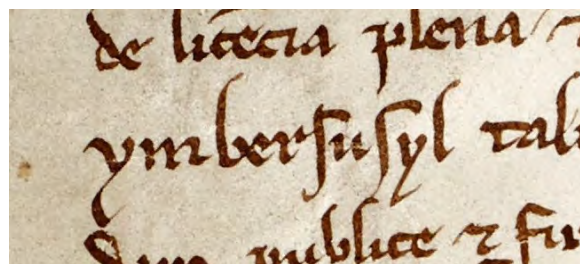 de licẽcia plena ⁊
ymbersusyl tal
dum publice ⁊ fir